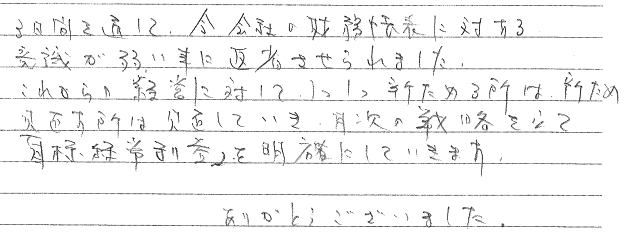 3日間を通して、今会社の財務諸表に対する
意識が弱い事に返省させられました。
これからの経営に対して、1つ1つ新ためる所は、新ため
見直す所は見直していき、月次の戦略を立て
「目標・経常利益」を明確にしていきます。
ありがとうございました。